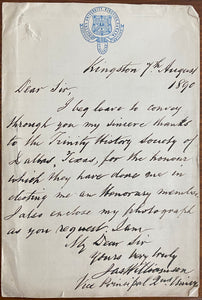 Kingston 7th August
1890
Dear Sir,
I beg leave to convey
through you my sincere thanks
to the Trinity History Society of
Dallas, Texas, for the honour
which they have done me in
electing me an Honorary member
I also enclose my photograph
as you request. I am
My Dear Sir
Yours very truly
Jas Williamson
Vice Principal